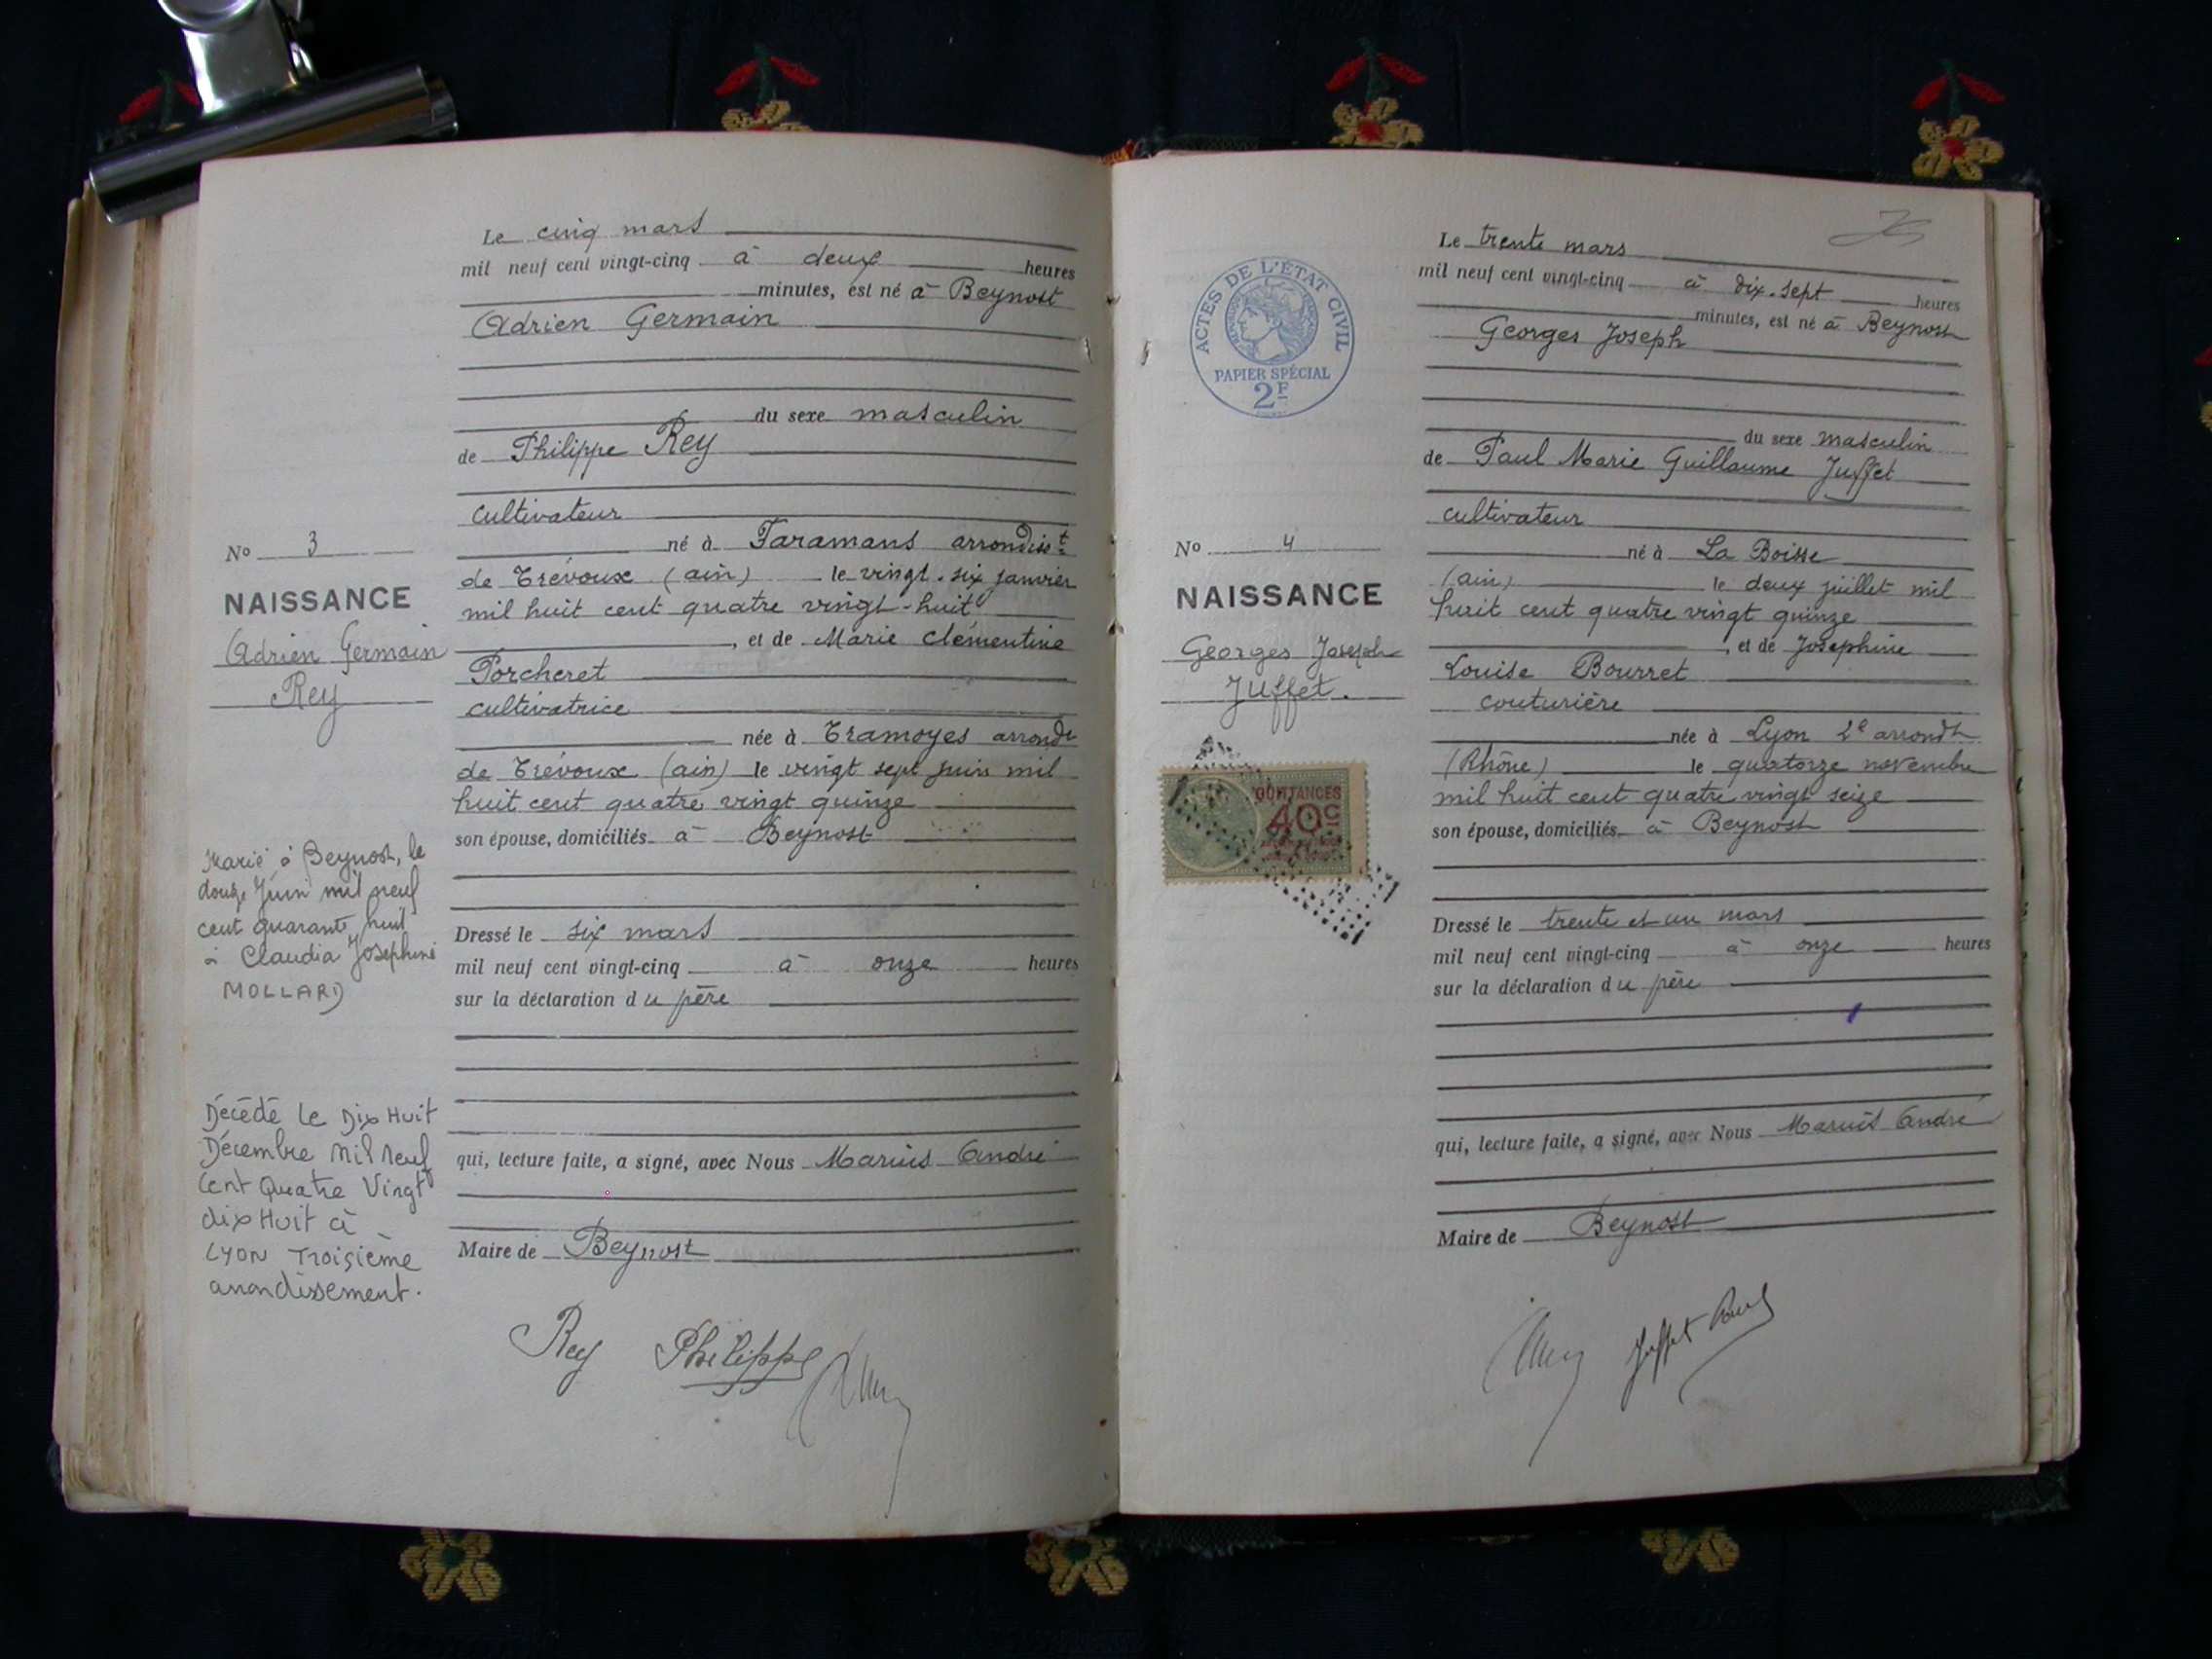 Le cinq mars
mil neuf cent vingt-cinq à deux heures
minutes, est né à Beynost
Adrien Germain
du sexe masculin
de Philippe Rey
cultivateur
né à Faramans arrondisst
de Trévoux (ain) le vingt-six janvier
mil huit cent quatre vingt-huit
, et de Marie Clémentine
Porcheret
cultivatrice
née à Tramoyes arrondt
de Trévoux (ain) le vingt sept juin mil
huit cent quatre vingt quinze
son épouse, domiciliés à Beynost
Dressé le six mars
mil neuf cent vingt-cinq à onze heures
sur la déclaration du père
qui, lecture faite, a signé, avec Nous Marius André
Maire de Beynost
Rey Philippe
No 3
NAISSANCE
Adrien Germain
Rey
Marié à Beynost, le
douze Juin mil neuf
cent quarante huit
à Claudia Josephine
MOLLARD
Décédé le Dix Huit
Décembre Mil Neuf
Cent Quatre Vingt
dix Huit à
LYON Troisième
arrondissement.
Le trente mars
mil neuf cent vingt-cinq à dix-sept heures
minutes, est né à Beynost
Georges Joseph
du sexe masculin
de Paul Marie Guillaume Juffet
cultivateur
né à La Boisse
(ain) le deux juillet mil
huit cent quatre vingt quinze
, et de Josephine
Louise Bourret
couturière
née à Lyon 2e arrondt
(Rhône) le quatorze novembre
mil huit cent quatre vingt seize
son épouse, domiciliés à Beynost
Dressé le trente et un mars
mil neuf cent vingt-cinq à onze heures
sur la déclaration du père
qui, lecture faite, a signé, avec Nous Marius André
Maire de Beynost
Juffet Paul
ACTES DE L'ÉTAT CIVIL
PAPIER SPÉCIAL
2F
No 4
NAISSANCE
Georges Joseph
Juffet.
QUITTANCES
40c